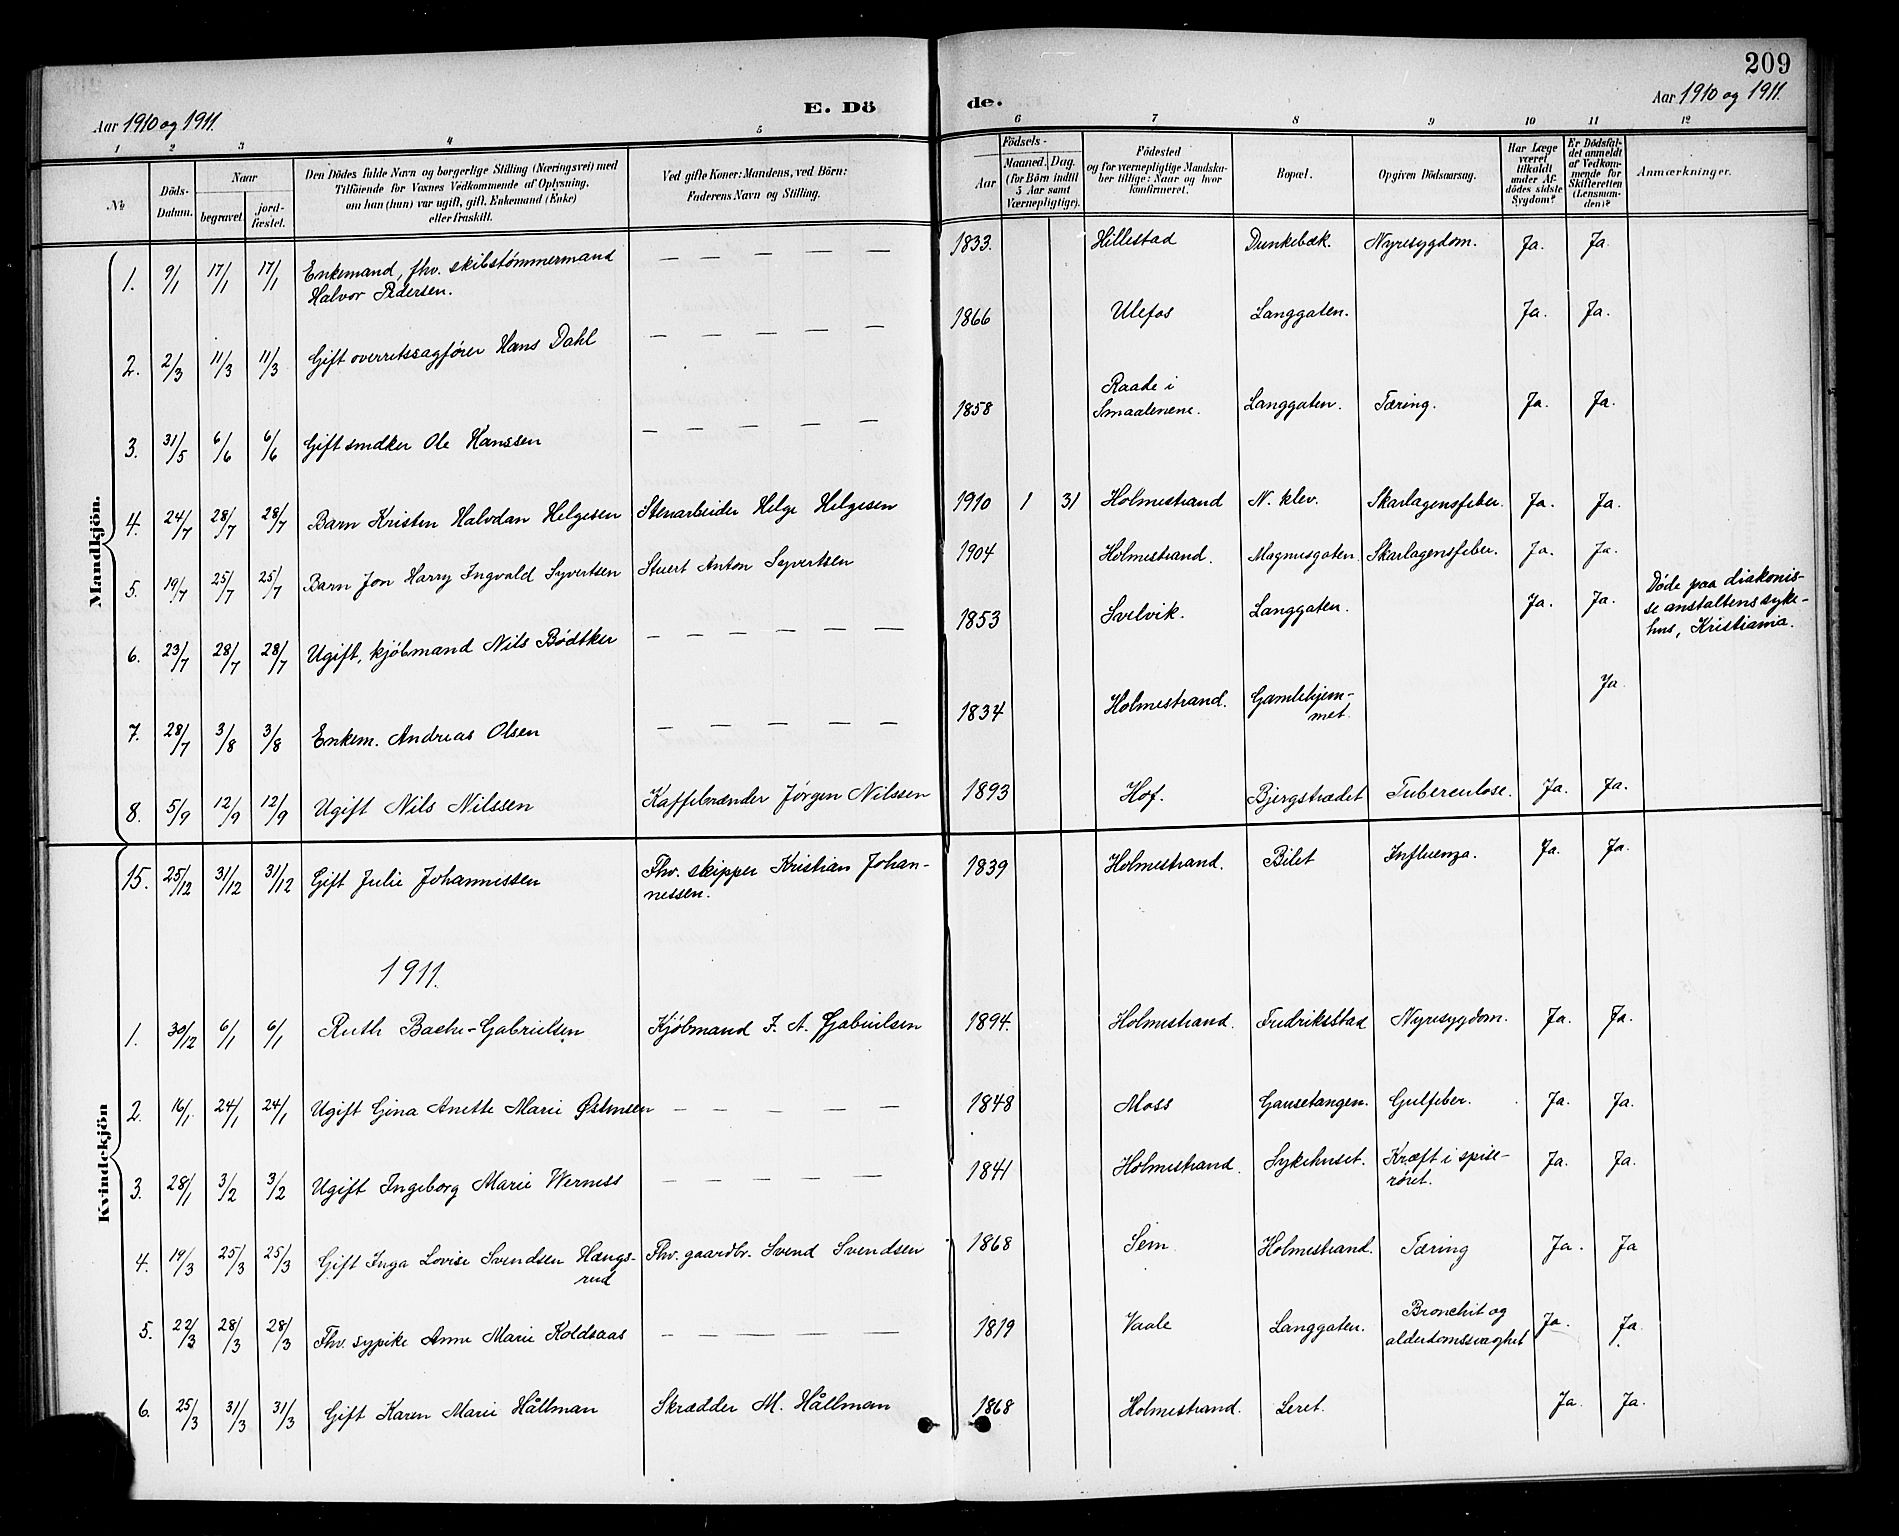 209
Aar 1910 og 1911.
E. Dö
de.
Aar 1910 og 1911.
1 2 3 4 5 6 7 8 9 10 11 12
No
Döds-Datum.
Naar
begravet
jord-fæstet.
Den Dödes fulde Navn og borgerlige Stilling (Næringsvei) med
Tilföiende for Voxnes Vedkommende af Oplysning,
om han (hun) var ugift, gift, Enkemand (Enke)
eller fraskilt.
Ved gifte Koner: Mandens, ved Börn:
Faderens Navn og Stilling.
Födsels-
Aar
Maaned. Dag.
(for Börn indtil
5 Aar samt
Værnepligtige).
Födested
og for værnepligtige Mandska-
ber tillige: Naar og hvor
konfirmeret.
Bopæl.
Opgiven Dödsaarsag.
Har Læge
været
tilkaldt
under Af-
dödes sidste
Sygdom?
Er Dödsfal-
det anmeldt
af Vedkom-
mende for
Skifteretten
(Lensman-
den)?
Anmærkninger.
Mandkjön.
1. 9/1 17/1 17/1 Enkemand, fhv. skibstømmermand — — — — — 1833. Hillestad Dunkebæk. Nyresygdom. Ja. Ja.
Halvor Pedersen.
2. 2/3 11/3 11/3 Gift overretssagfører Hans Dahl — — — — — 1866 Ulefos Langgaten. Ja. Ja.
3. 31/5 6/6 6/6 Gift snedker Ole Hanssen — — — — — 1858 Raade i
Smaalenene. Langgaten. Tæring. Ja. Ja.
4. 24/7 28/7 28/7 Barn Kristen Halvdan Helgesen Stenarbeider Helge Helgesen 1910 1 31 Holmestrand N. klev. Skarlagensfeber. Ja. Ja.
5. 19/7 25/7 25/7 Barn Jon Harry Ingvald Syvertsen Stuert Anton Syvertsen 1904 Holmestrand. Magnusgaten. Skarlagensfeber. Ja. Ja.
6. 23/7 28/7 28/7 Ugift, kjøbmand Nils Bødtker — — — — — — 1853 Svelvik. Langgaten. Ja. Ja. Døde paa diakonis-
se anstaltens syke-
hus, Kristiania.
7. 28/7 3/8 3/8 Enkem. Andreas Olsen — — — — — 1834 Holmestrand. Gamlehjem-
met. Ja.
8. 5/9 12/9 12/9 Ugift Nils Nilssen Kaffebrænder Jørgen Nilssen 1893 Hof. Bjergstrædet Tuberculose. Ja. Ja.
Kvindekjön
15. 25/12 31/12 31/12 Gift Julie Johannessen Fhv. skipper Kristian Johan-
nessen. 1839 Holmestrand. Bilet Influenza. Ja. Ja.
1911.
1. 30/12 6/1 6/1 Ruth Bache-Gabrielsen Kjøbmand F. A. Gabrielsen 1894. Holmestrand. Fredriksstad Nyresygdom. Ja. Ja.
2. 16/1 24/1 24/1 Ugift Gina Anette Marie Østensen — — — — — — 1848 Moss Gausetangen. Gulfeber. Ja. Ja.
3. 28/1 3/2 3/2 Ugift Ingeborg Marie Werness — — — — — — 1841 Holmestrand. Sykehuset. Kræft i spise-
røret. Ja. Ja.
4. 19/3 25/3 25/3 Gift Inga Lovise Svendsen Hængs-
rud Fhv. gaardbr. Svend Svendsen 1868 Sem Holmestrand. Tæring Ja. Ja
5. 22/3 28/3 28/3 Fhv. sypike Anne Marie Koldsaas — — — — — — 1819 Vaale Langgaten. Bronchit og
alderdomssvaghet Ja. Ja.
6. 25/3 31/3 31/3 Gift Karen Marie Hållman Skrædder M. Hållman 1868 Holmestrand. Leret. Ja. Ja.